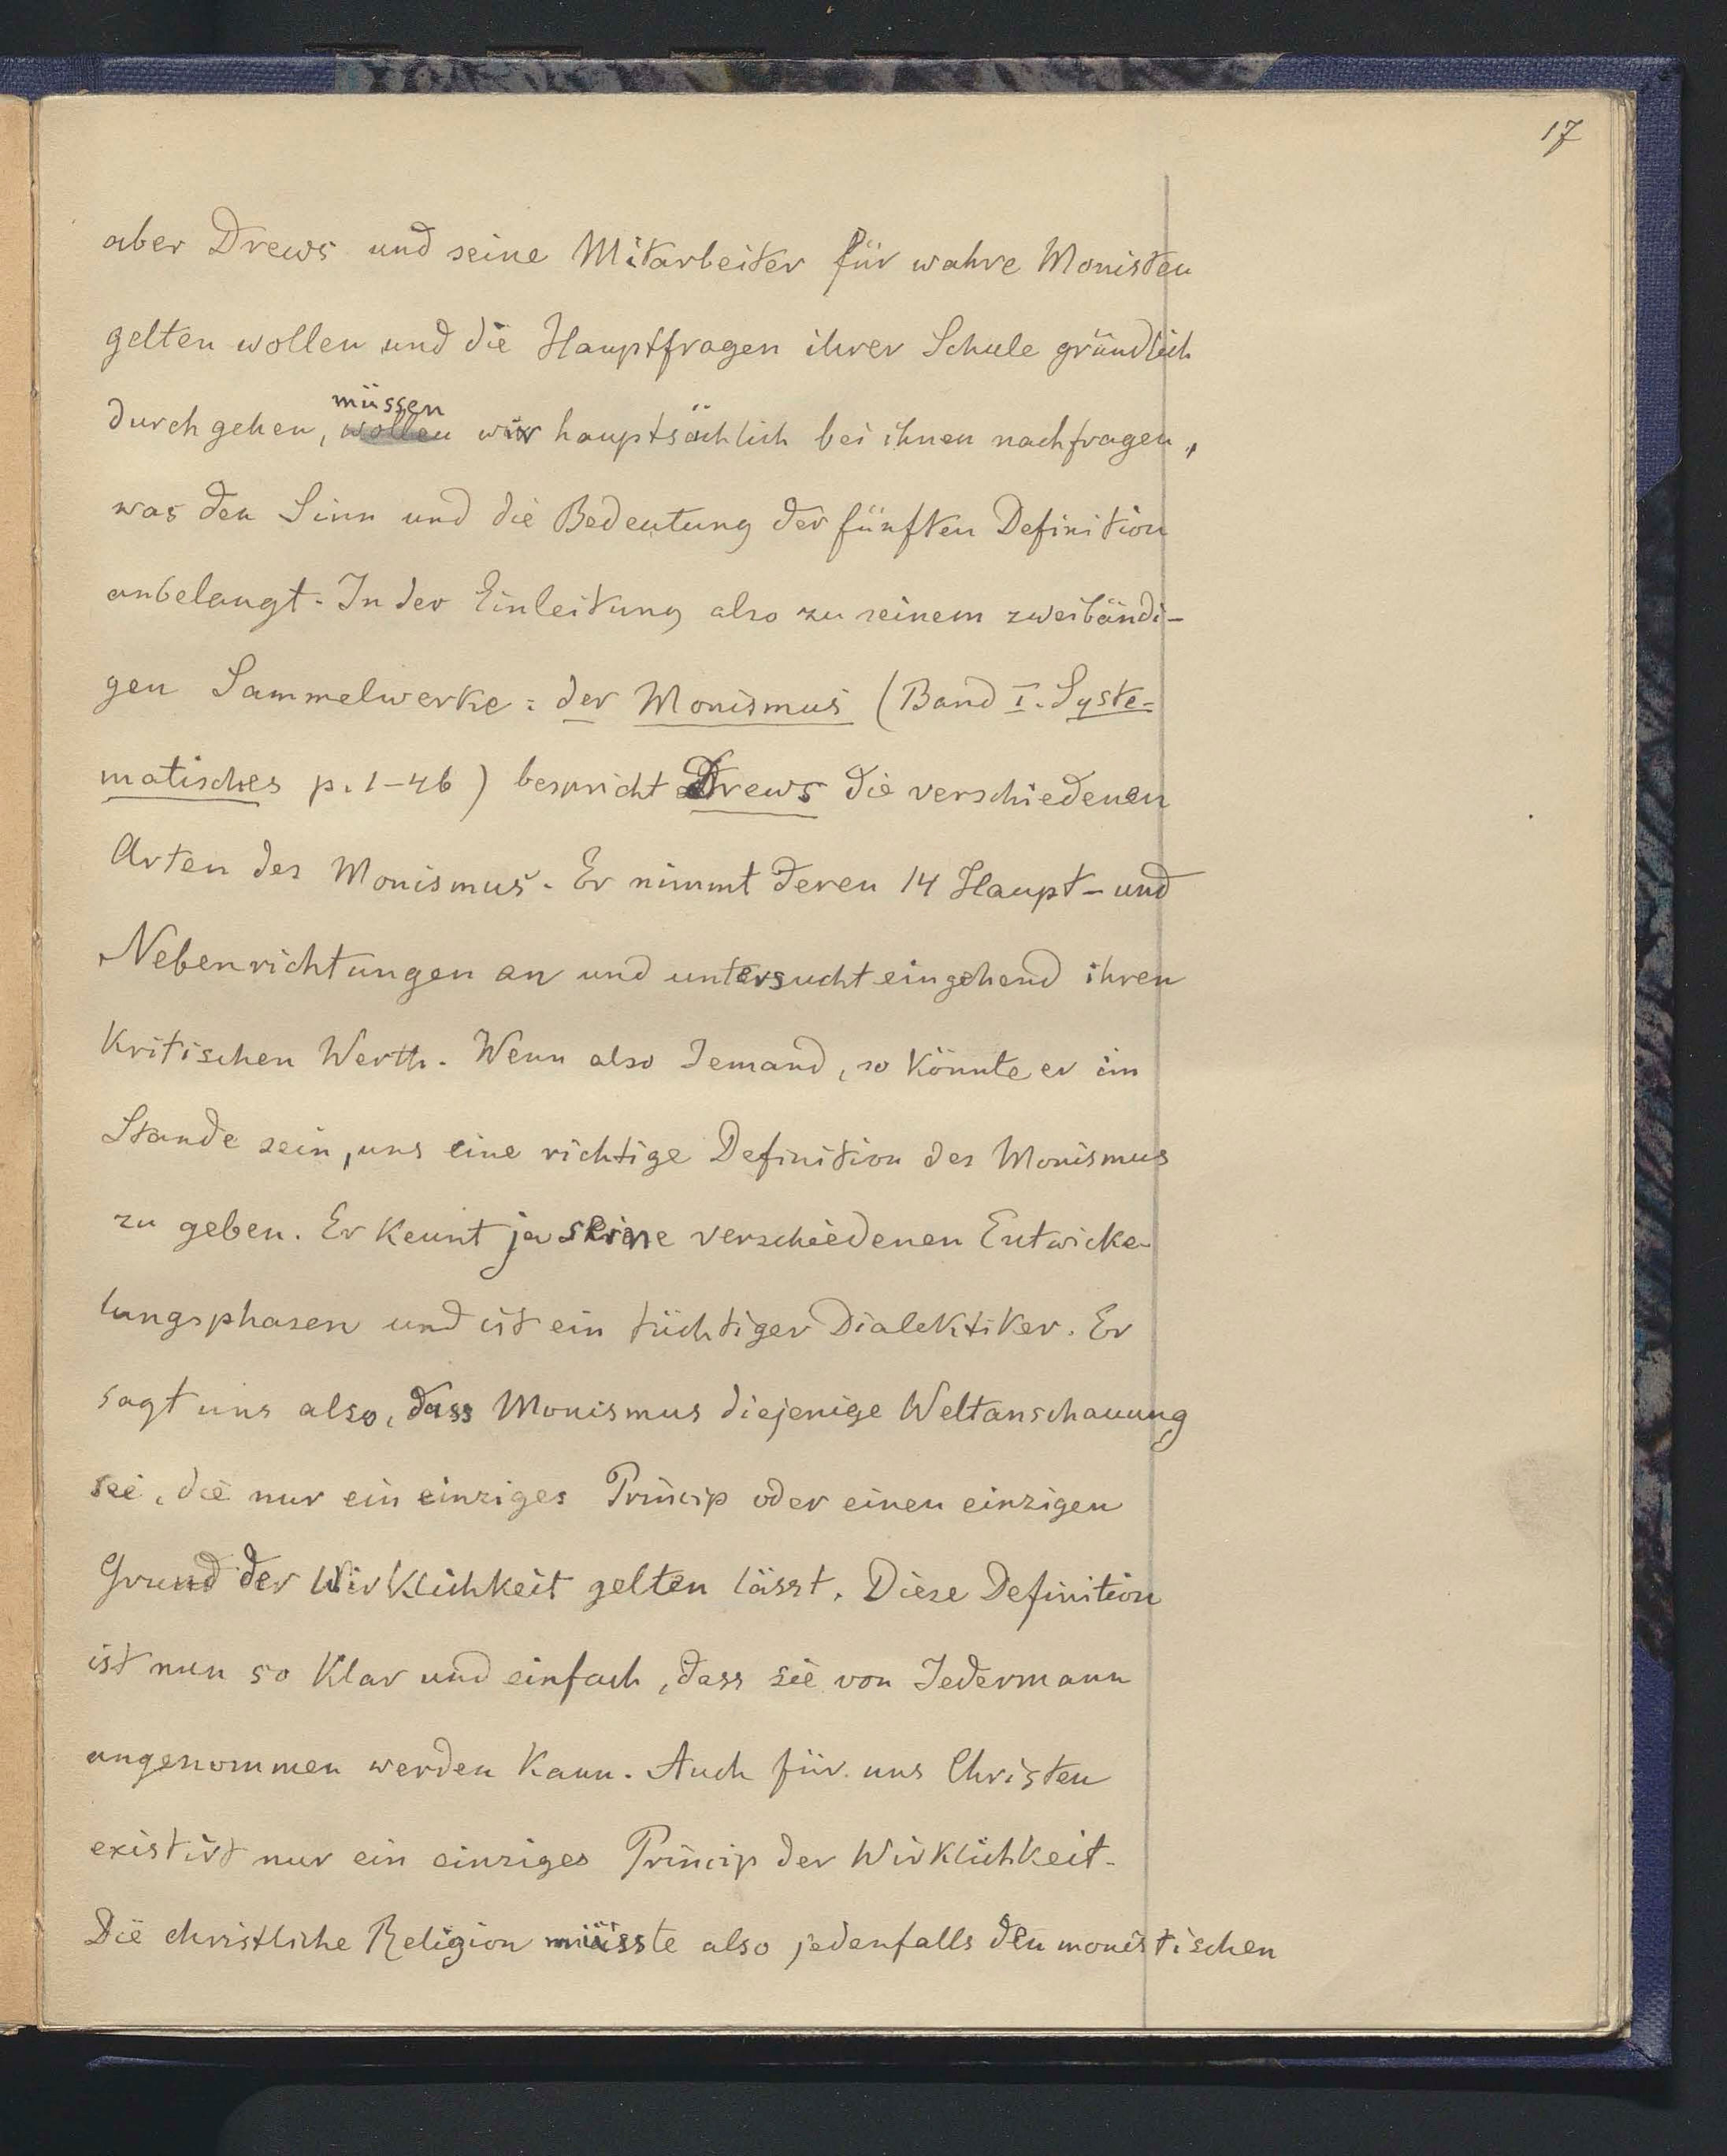 17
aber Drews und seine Mitarbeiter für wahre Monisten
gelten wollen und die Hauptfragen ihrer Schule gründlich
müssen
durchgehen, wollen wir hauptsächlich bei ihnen nachfragen,
was den Sinn und die Bedeutung der fünften Definition
anbelangt. In der Einleitung also zu seinem zweibändi-
gen Sammelwerke: der Monismus (Band I. Syste-
matisches p. 1-46) bespricht Drews die verschiedenen
Arten des Monismus. Er nimmt deren 14 Haupt- und
Nebenrichtungen an und untersucht eingehend ihren
kritischen Werth. Wenn also Jemand, so könnte er im
Stande sein, uns eine richtige Definition des Monismus
zu geben. Er kennt ja seine verschiedenen Entwicke-
lungsphasen und ist ein tüchtiger Dialektiker. Er
sagt uns also, dass Monismus diejenige Weltanschauung
sei, die nur ein einziges Princip oder einen einzigen
Grund der Wirklichkeit gelten lässt. Diese Definition
ist nun so klar und einfach, dass sie von Jedermann
angenommen werden kann. Auch für uns Christen
existirt nur ein einziges Princip der Wirklichkeit.
Die christliche Religion müsste also jedenfalls den monistischen